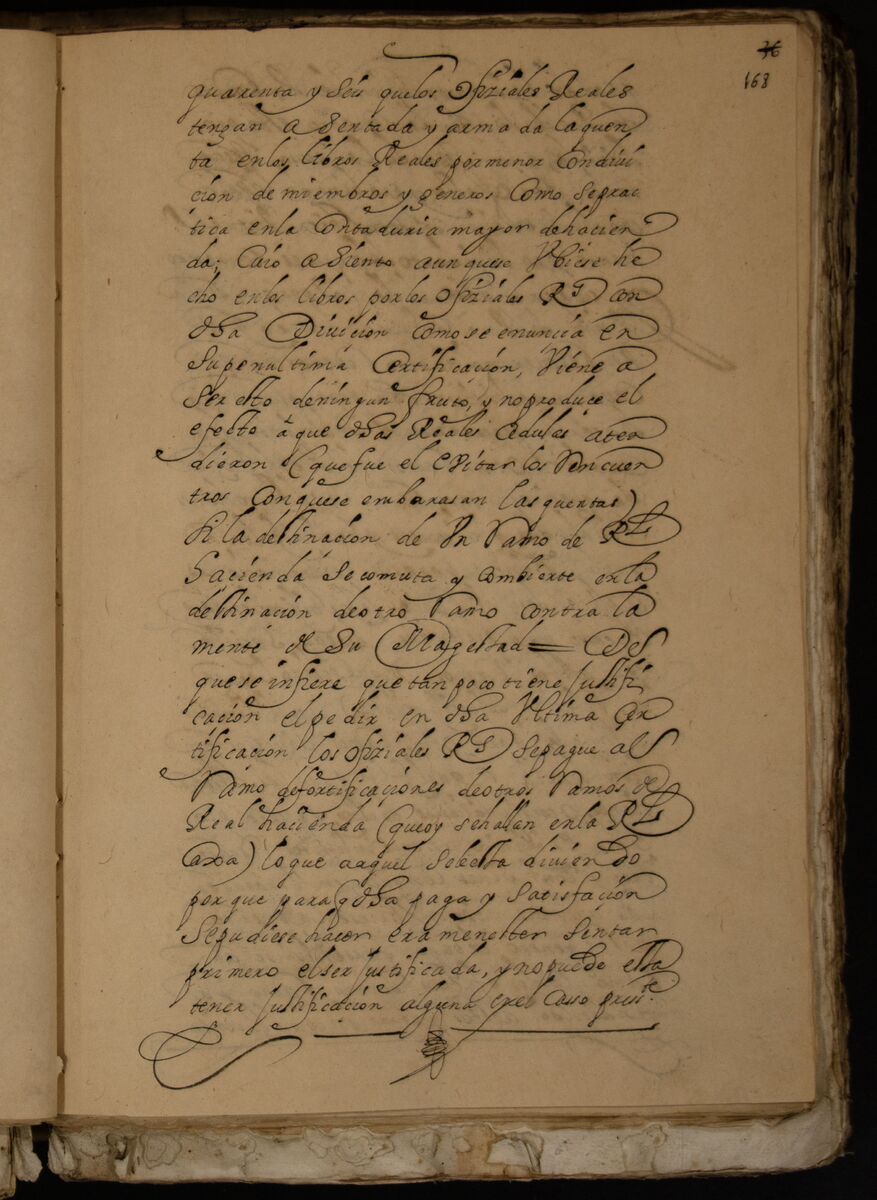 36
168
quarenta y seis que los Ofiziales Reales
tengan asentada y armada la quen
ta en los libros Reales por menor Con divi
cion de miembros y generos Como se prac
tica en la Contaduria mayor de hacien
da; Cuio asiento aunque se Vbiese he
cho en los libros por los Ofiziales Rs con
dha Divicion como se enuncia en
su penultima Certificación, Viene a
ser esto de ningun fruto, y no produce el
efecto à que dhas Reales Cedulas aten
dieron (que fue el evitar los Rencuen
tros con que se embarasan las quentas)
si la destinación de Vn Ramo de Rl
hacienda se comuta y combierte en la
destinación de otro Ramo contra la
mente de Su Magestad = Des
que se infiere que tan poco tiene justifi
cación el pedir en dha Vltima Cer
tificación los Ofiziales Rs se pague als
Ramo de fortificaciones de otros Ramos de
Real hacienda (que oy se hallan en la Rl
Caxa) lo que a aquel se le esta diviendo
por que para q dha paga y satisfación
se pudiese hacer era menester sentar
primero el ser justificada, y no puede esta
tener justificación alguna en el Caso preste.